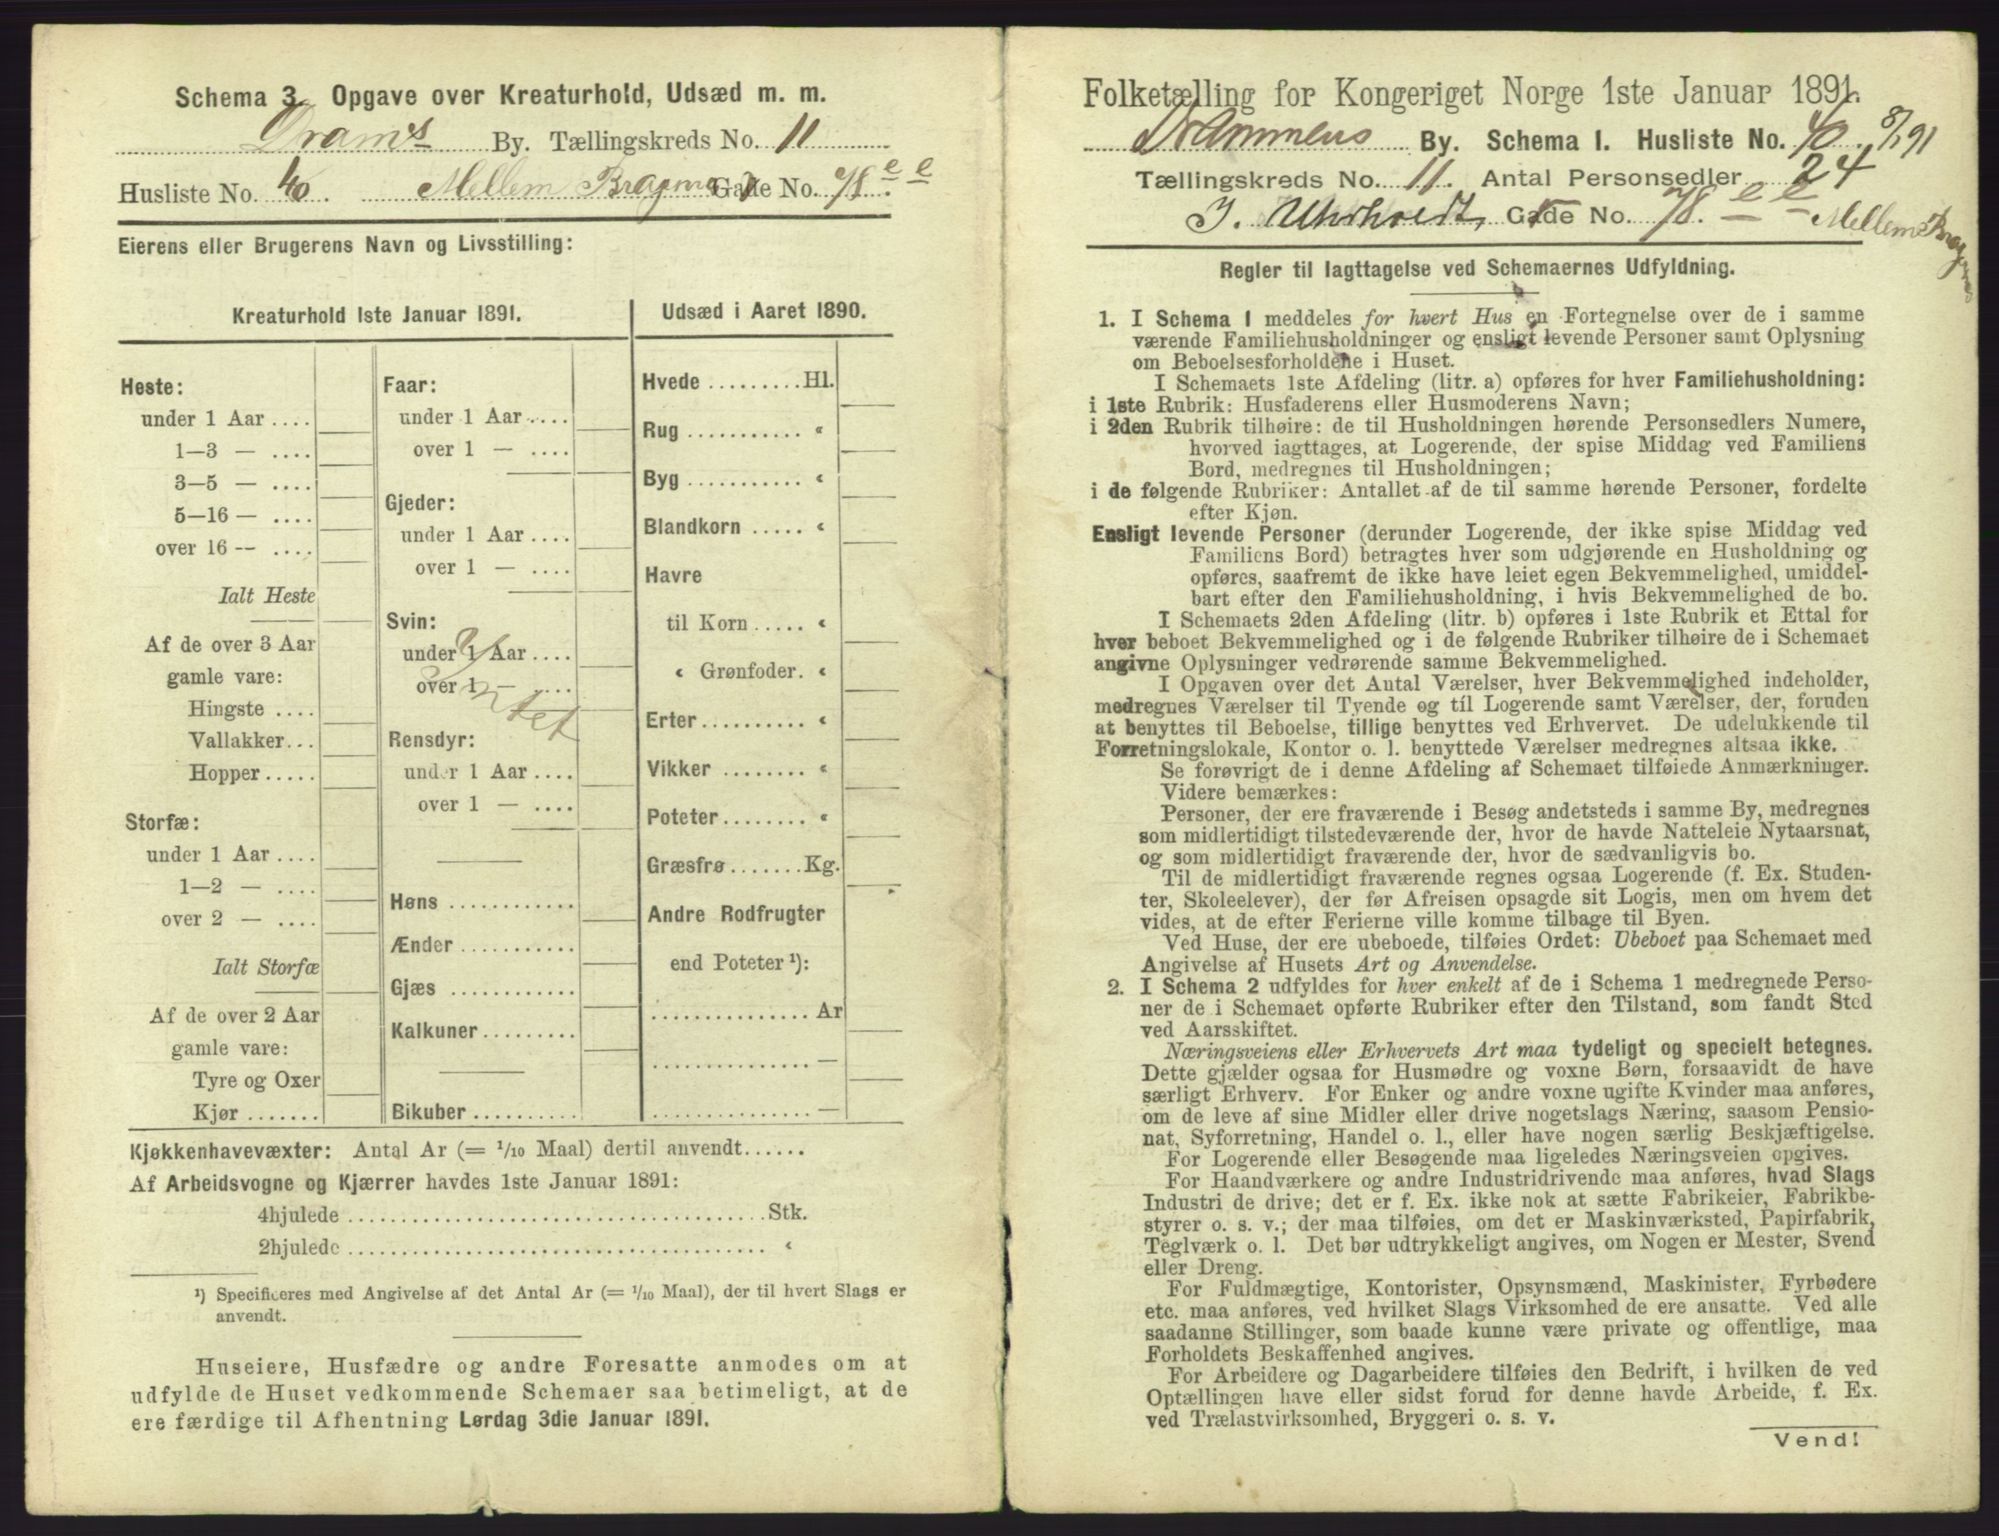 Schema 3. Opgave over Kreaturhold, Udsæd m. m.
Dram's By. Tællingskreds No. 11
Husliste No. 40. Mellem Bragernes Gade No. 78 e e
Eierens eller Brugerens Navn og Livsstilling:
Kreaturhold 1ste Januar 1891.
Heste:
under 1 Aar ....
1—3 — ....
3—5 — ....
5—16 — ....
over 16 — ....
Ialt Heste
Af de over 3 Aar
gamle vare:
Hingste ....
Vallakker...
Hopper.....
Storfæ:
under 1 Aar ....
1—2 — ....
over 2 — ....
Ialt Storfæ
Af de over 2 Aar
gamle vare:
Tyre og Oxer
Kjør .......
Faar:
under 1 Aar ....
over 1 — ....
Gjeder:
under 1 Aar ....
over 1 — ....
Svin:
under 1 Aar ....
over 1 — ....
Intet
Rensdyr:
under 1 Aar ....
over 1 — ....
Høns ............
Ænder ............
Gjæs ............
Kalkuner .........
Bikuber ..........
Udsæd i Aaret 1890.
Hvede .........Hl.
Rug ........... «
Byg ........... «
Blandkorn ..... «
Havre
til Korn ..... «
« Grønfoder. «
Erter ......... «
Vikker ........ «
Poteter ....... «
Græsfrø .......Kg.
Andre Rodfrugter
end Poteter ¹):
............... Ar
............... —
............... —
Kjøkkenhavevæxter: Antal Ar (= 1/10 Maal) dertil anvendt......
Af Arbeidsvogne og Kjærrer havdes 1ste Januar 1891:
4hjulede ......................................Stk.
2hjulede ...................................... «
¹) Specificeres med Angivelse af det Antal Ar (= 1/10 Maal), der til hvert Slags er
anvendt.
Huseiere, Husfædre og andre Foresatte anmodes om at
udfylde de Huset vedkommende Schemaer saa betimeligt, at de
ere færdige til Afhentning Lørdag 3die Januar 1891.
Folketælling for Kongeriget Norge 1ste Januar 1891.
Drammens By. Schema I. Husliste No. 40. 8/1 91
Tællingskreds No. 11. Antal Personsedler 24
Gade No. 78 e e Mellem Bragernes
Regler til Iagttagelse ved Schemaernes Udfyldning.
1. I Schema 1 meddeles for hvert Hus en Fortegnelse over de i samme
værende Familiehusholdninger og ensligt levende Personer samt Oplysning
om Beboelsesforholdene i Huset.
I Schemaets 1ste Afdeling (litr. a) opføres for hver Familiehusholdning:
i 1ste Rubrik: Husfaderens eller Husmoderens Navn;
i 2den Rubrik tilhøire: de til Husholdningen hørende Personsedlers Numere,
hvorved iagttages, at Logerende, der spise Middag ved Familiens
Bord, medregnes til Husholdningen;
i de følgende Rubriker: Antallet af de til samme hørende Personer, fordelte
efter Kjøn.
Ensligt levende Personer (derunder Logerende, der ikke spise Middag ved
Familiens Bord) betragtes hver som udgjørende en Husholdning og
opføres, saafremt de ikke have leiet egen Bekvemmelighed, umiddel-
bart efter den Familiehusholdning, i hvis Bekvemmelighed de bo.
I Schemaets 2den Afdeling (litr. b) opføres i 1ste Rubrik et Ettal for
hver beboet Bekvemmelighed og i de følgende Rubriker tilhøire de i Schemaet
angivne Oplysninger vedrørende samme Bekvemmelighed.
I Opgaven over det Antal Værelser, hver Bekvemmelighed indeholder,
medregnes Værelser til Tyende og til Logerende samt Værelser, der, foruden
at benyttes til Beboelse, tillige benyttes ved Erhvervet. De udelukkende til
Forretningslokale, Kontor o. l. benyttede Værelser medregnes altsaa ikke.
Se forøvrigt de i denne Afdeling af Schemaet tilføiede Anmærkninger.
Videre bemærkes:
Personer, der ere fraværende i Besøg andetsteds i samme By, medregnes
som midlertidigt tilstedeværende der, hvor de havde Natteleie Nytaarsnat,
og som midlertidigt fraværende der, hvor de sædvanligvis bo.
Til de midlertidigt fraværende regnes ogsaa Logerende (f. Ex. Studen-
ter, Skoleelever), der før Afreisen opsagde sit Logis, men om hvem det
vides, at de efter Ferierne ville komme tilbage til Byen.
Ved Huse, der ere ubeboede, tilføies Ordet: Ubeboet paa Schemaet med
Angivelse af Husets Art og Anvendelse.
2. I Schema 2 udfyldes for hver enkelt af de i Schema 1 medregnede Perso-
ner de i Schemaet opførte Rubriker efter den Tilstand, som fandt Sted
ved Aarsskiftet.
Næringsveiens eller Erhvervets Art maa tydeligt og specielt betegnes.
Dette gjælder ogsaa for Husmødre og voxne Børn, forsaavidt de have
særligt Erhverv. For Enker og andre voxne ugifte Kvinder maa anføres,
om de leve af sine Midler eller drive nogetslags Næring, saasom Pensio-
nat, Syforretning, Handel o. l., eller have nogen særlig Beskjæftigelse.
For Logerende eller Besøgende maa ligeledes Næringsveien opgives.
For Haandværkere og andre Industridrivende maa anføres, hvad Slags
Industri de drive; det er f. Ex. ikke nok at sætte Fabrikeier, Fabrikbe-
styrer o. s. v.; der maa tilføies, om det er Maskinværksted, Papirfabrik,
Teglværk o. l. Det bør udtrykkeligt angives, om Nogen er Mester, Svend
eller Dreng.
For Fuldmægtige, Kontorister, Opsynsmænd, Maskinister, Fyrbødere
etc. maa anføres, ved hvilket Slags Virksomhed de ere ansatte. Ved alle
saadanne Stillinger, som baade kunne være private og offentlige, maa
Forholdets Beskaffenhed angives.
For Arbeidere og Dagarbeidere tilføies den Bedrift, i hvilken de ved
Optællingen have eller sidst forud for denne havde Arbeide, f. Ex.
ved Trælastvirksomhed, Bryggeri o. s. v.
Vend!